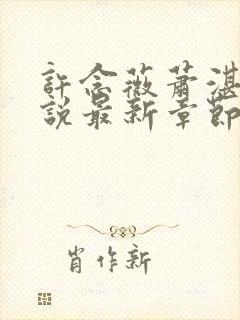 許念薇蕭湛
說最新章節
肖作新